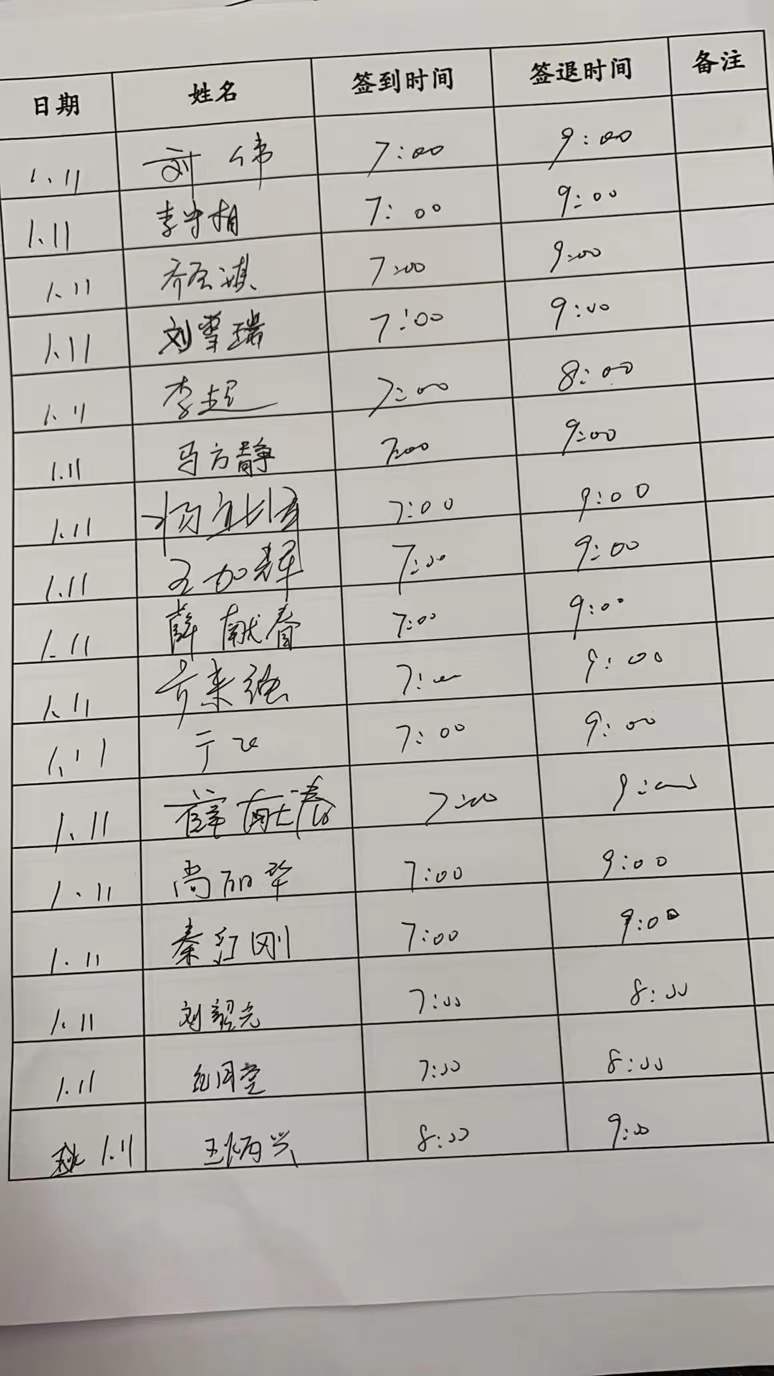 日期 姓名 签到时间 签退时间 备注
1.11 刘伟 7:00 9:00
1.11 李守相 7:00 9:00
1.11 7:00 9:00
1.11 刘雪瑞 7:00 9:00
1.11 李超 7:00 8:00
1.11 马方静 7:00 9:00
1.11 7:00 9:00
1.11 王加辉 7:00 9:00
1.11 薛献春 7:00 9:00
1.11 7:00 9:00
1.11 于飞 7:00 9:00
1.11 薛献春 7:00 9:00
1.11 尚丽华 7:00 9:00
1.11 秦红刚 7:00 9:00
1.11 刘 7:00 8:00
1.11 7:00 8:00
1.11 王炳兴 8:00 9:0